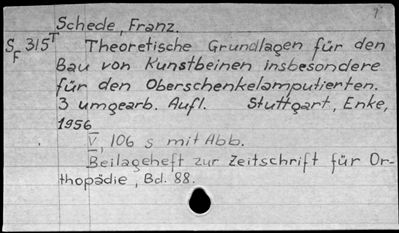 Schede, Franz.
S_F 315^T Theoretische Grundlagen für den
Bau von Kunstbeinen insbesondere
für den Oberschenkelamputierten.
3 umgearb. Aufl. Stuttgart, Enke,
1956
V, 106 s mit Abb.
Beilageheft zur Zeitschrift für Or-
thopädie, Bd. 88.